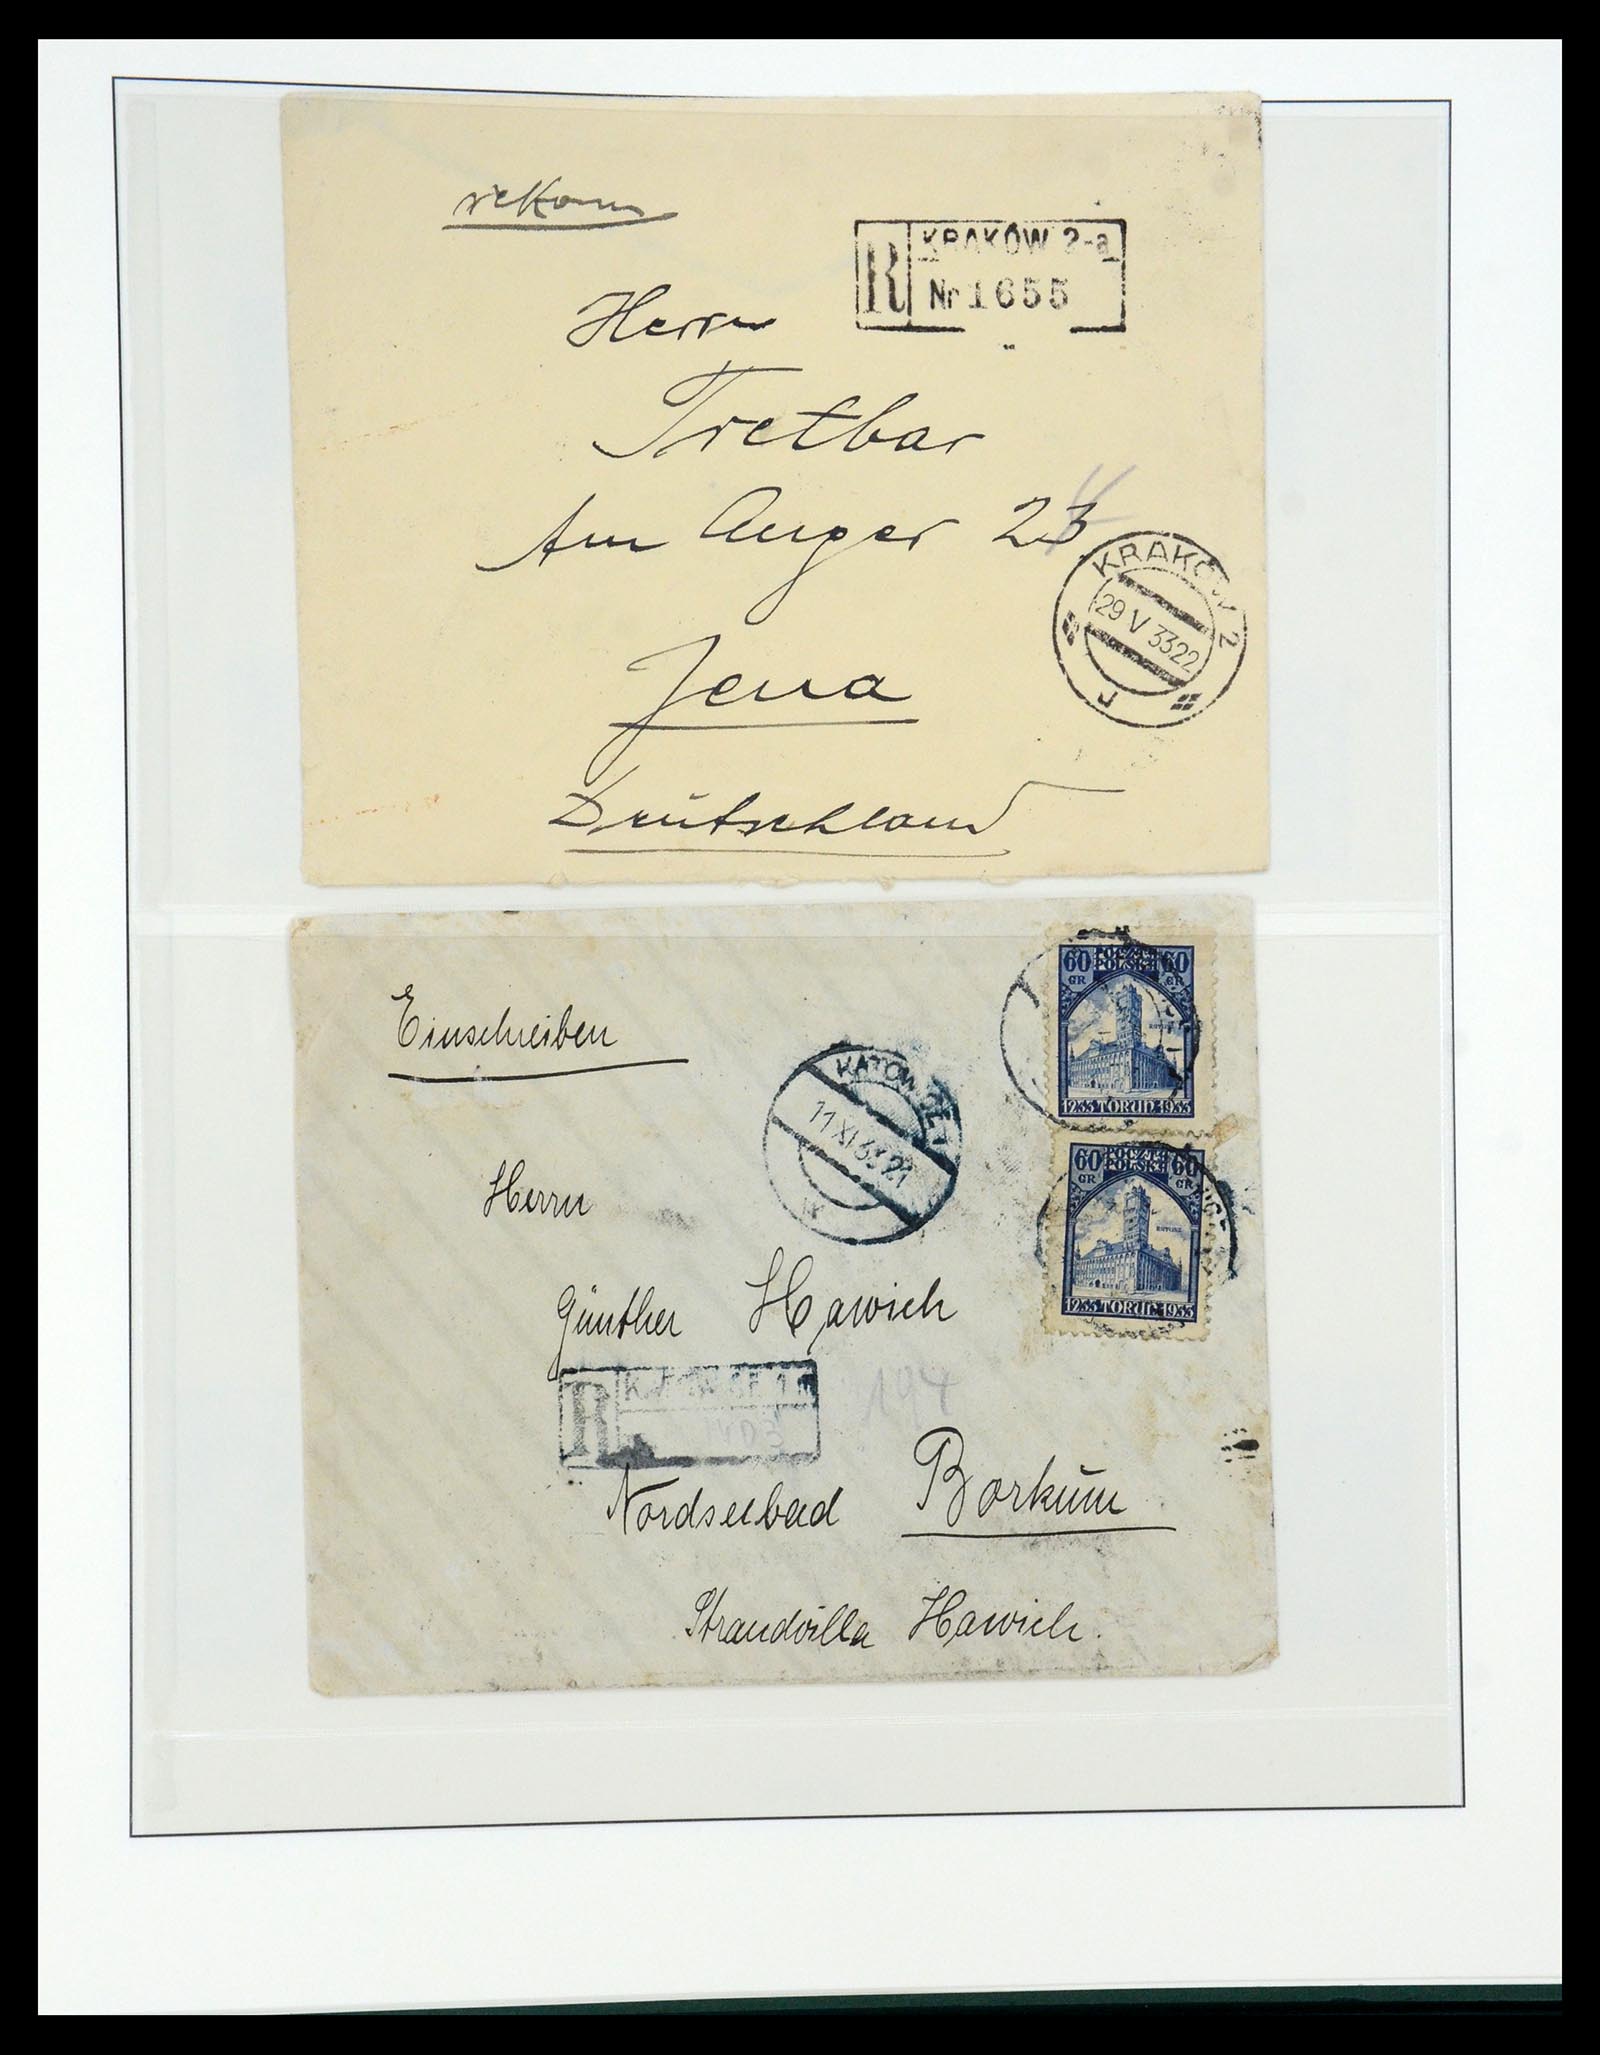 rekom
R KRAKÓW 2-a
Nr 1655
Herrn
Tretbar
Am Anger 23
KRAKÓW 2
29 V 33 22
J
Jena
Deutschland
60 POCZTA 60
GR POLSKA GR
RATUSZ
1233 TORUŃ 1933
Einschreiben
KATOWICE 1
11 XI 33 21
60 POCZTA 60
GR POLSKA GR
RATUSZ
1233 TORUŃ 1933
Herrn
Günther Hawich
R
1403
194
Nordseebad Borkum
Strandvilla Hawich.